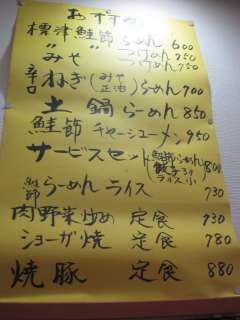 おすすめ
標津鮭節 らーめん 600
〃 〃 つけめん 750
みそ つけめん 750
辛口 ねぎ (みそ 正油) らーめん 700
土鍋らーめん 850
鮭節 チャーシューメン 950
サービスセット (鮭節らーめん 餃子3ケ ライス小) 800
鮭節 らーめん ライス 730
肉野菜炒め 定食 730
ショーガ焼 定食 780
焼豚 定食 880